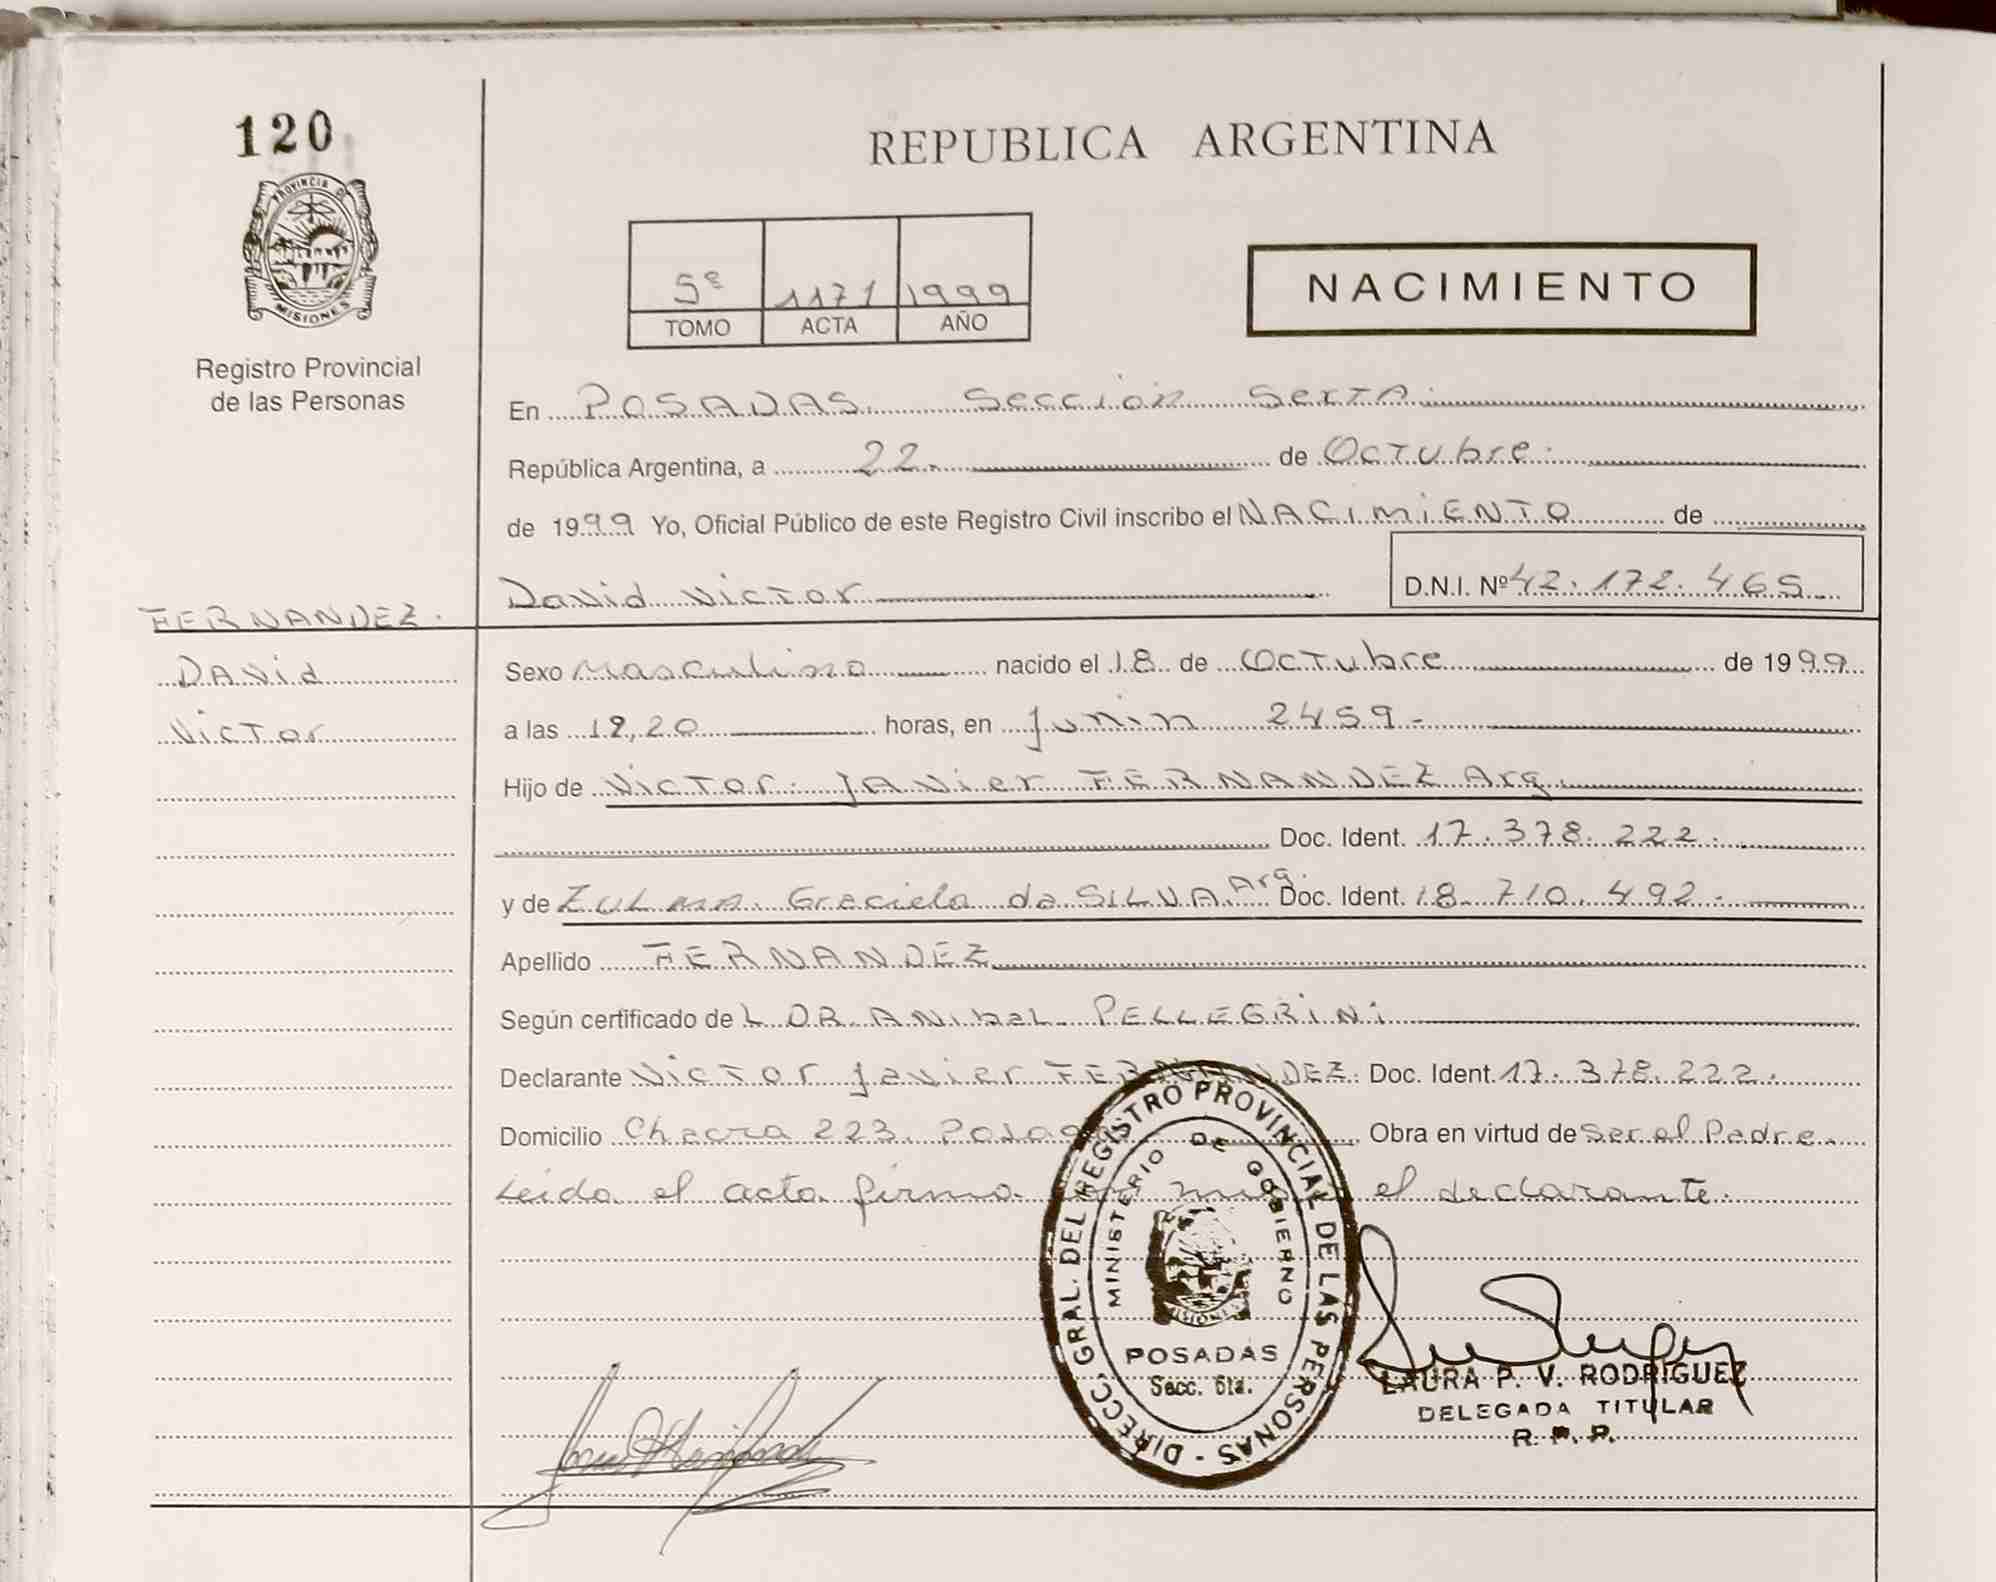 120
PROVINCIA D
MISIONES
Registro Provincial
de las Personas
REPUBLICA ARGENTINA
5º 1171 1999
TOMO ACTA AÑO
NACIMIENTO
En POSADAS Sección Sexta
República Argentina, a 22. de Octubre.
de 1999 Yo, Oficial Público de este Registro Civil inscribo el NACIMIENTO de
David Victor D.N.I. Nº 42.172.465
FERNANDEZ.
David
Victor
Sexo Masculino nacido el 18 de Octubre de 1999
a las horas, en Junin 2459-
Hijo de Victor Javier FERNANDEZ Arg.
Doc. Ident. 17.378.222.
y de Zulma Graciela da SILVA Arg. Doc. Ident. 18.710.492.
Apellido FERNANDEZ
Según certificado de L DR ANibal PELLEGRiNi
Declarante Victor Javier FERNANDEZ. Doc. Ident. 17.378.222.
Domicilio Chacra 223. Posadas Obra en virtud de Ser el Padre.
Leida el acta firma el declarante.
DIRECC. GRAL. DEL REGISTRO PROVINCIAL DE LAS PERSONAS -
MINISTERIO DE GOBIERNO
MISIONES
POSADAS
Secc. 6ta.
LAURA P. V. RODRIGUEZ
DELEGADA TITULAR
R. P. P.